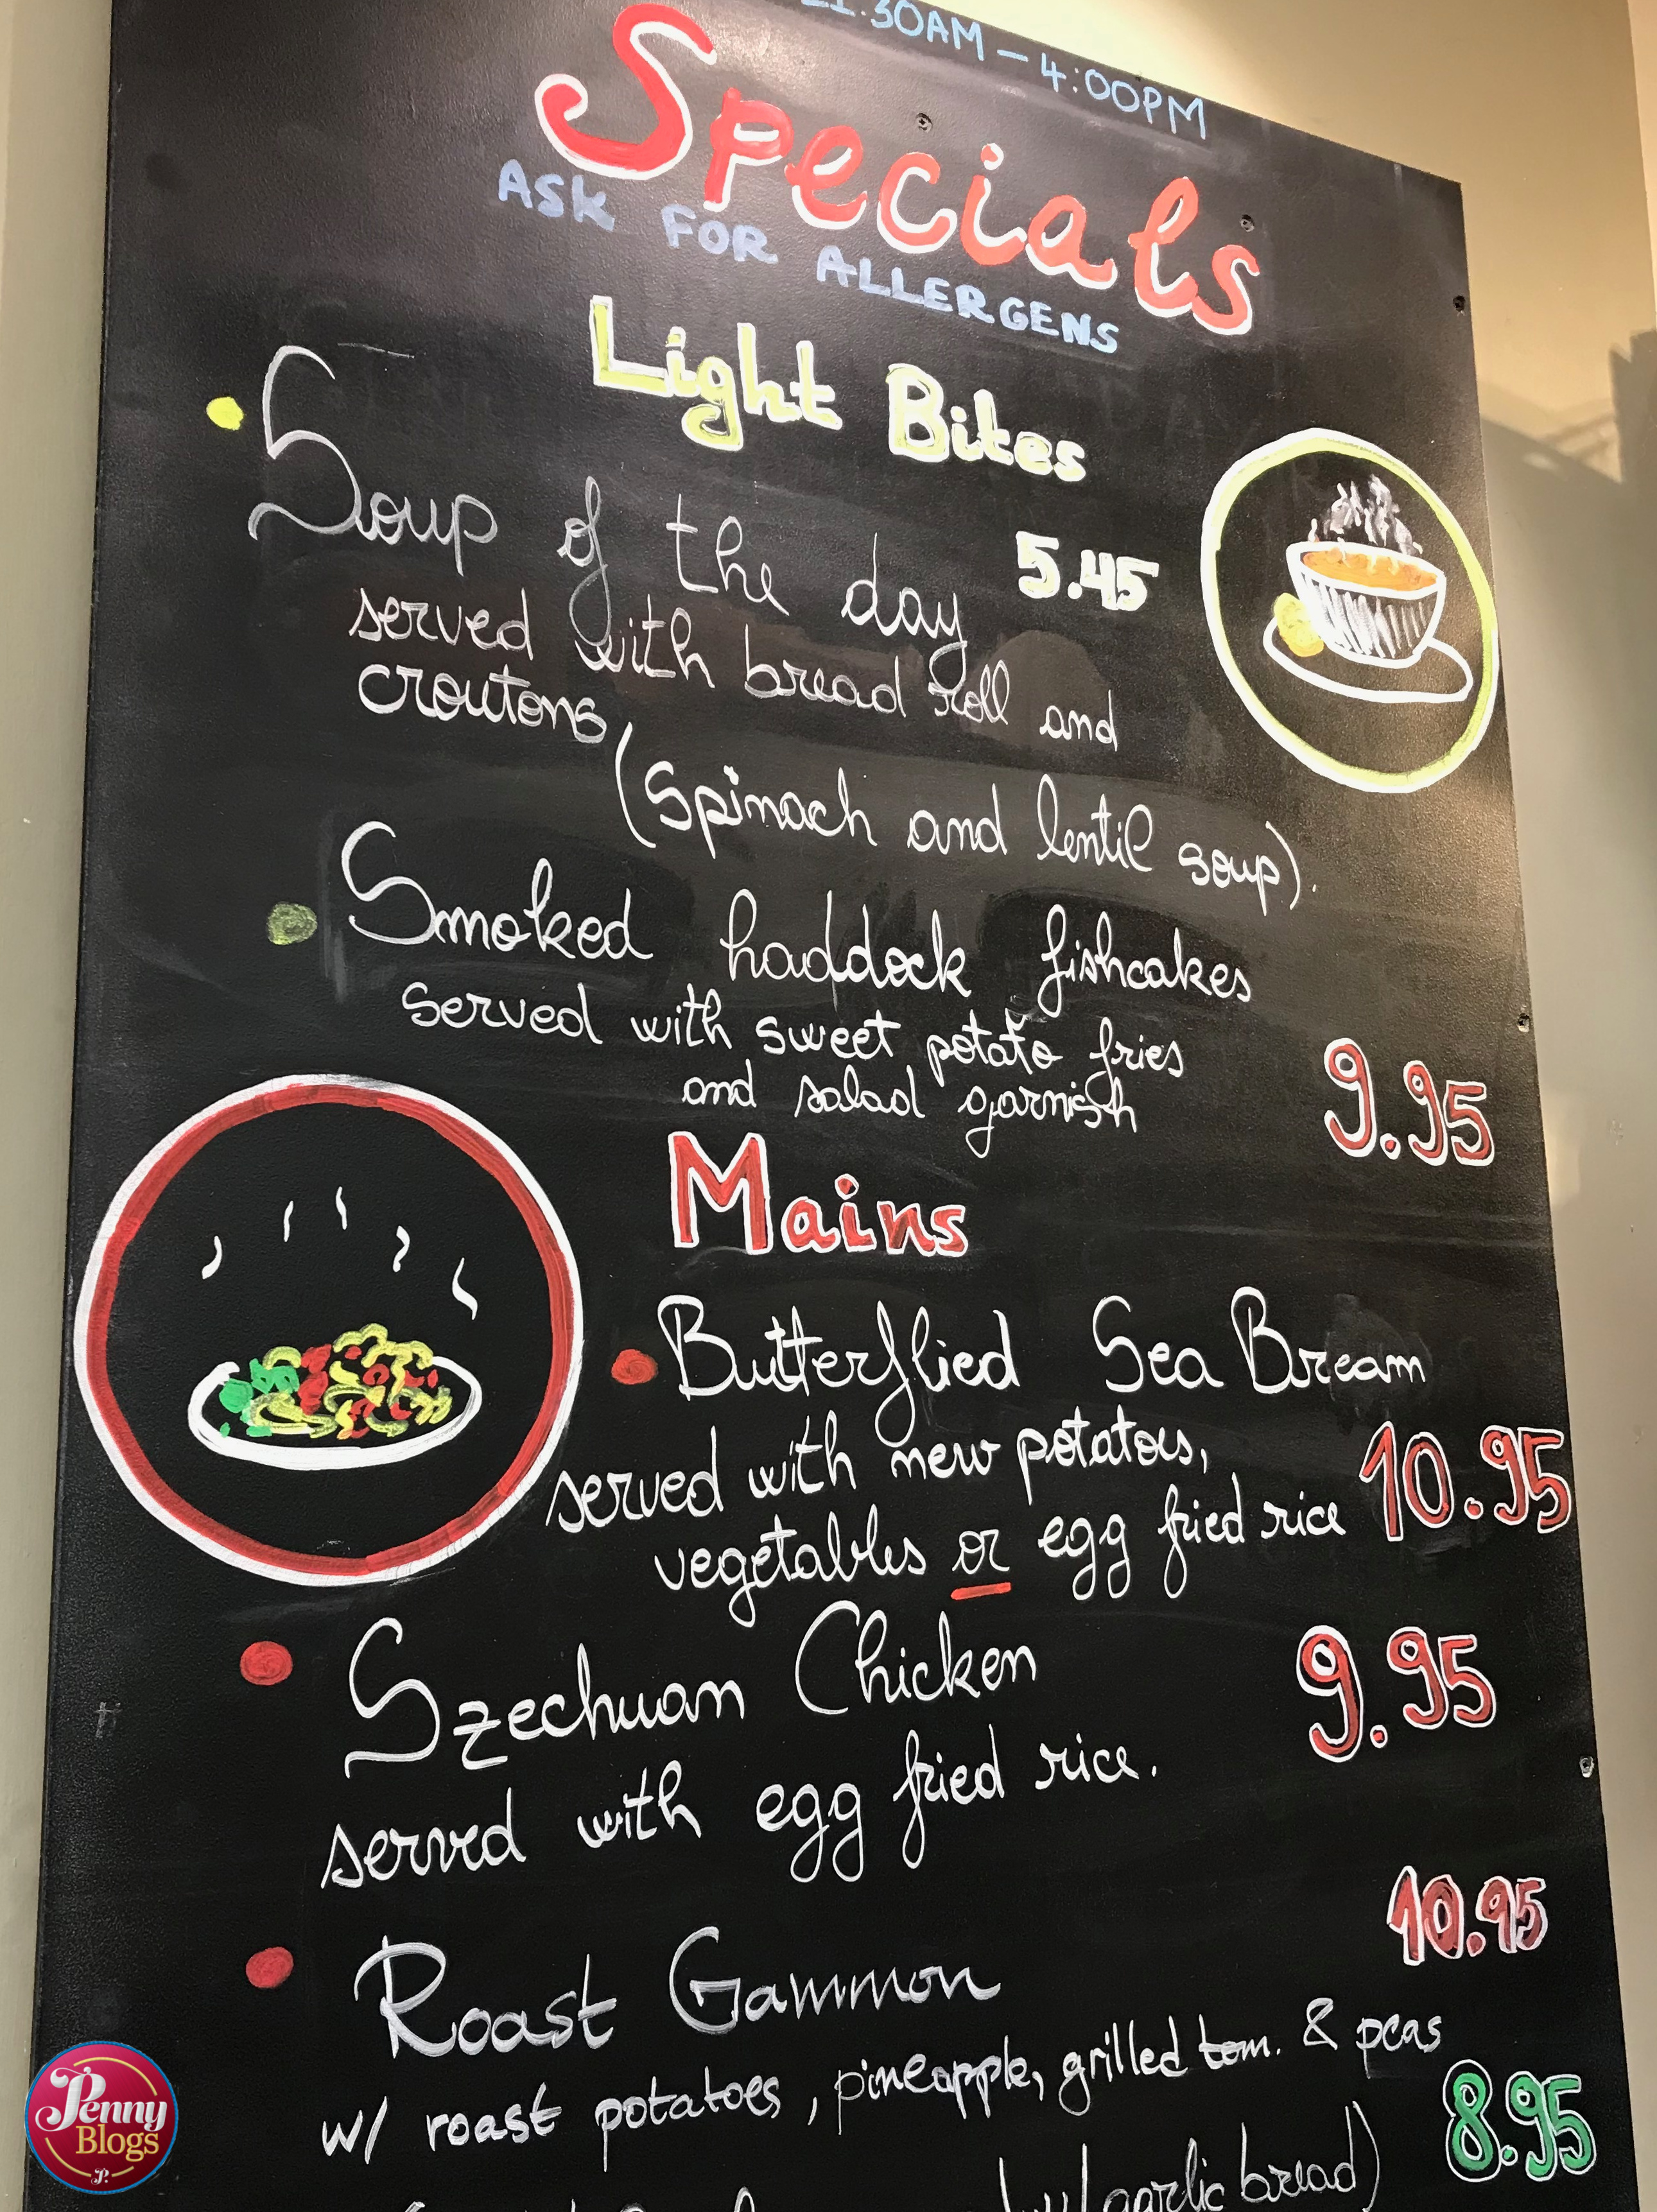 .30AM – 4:00PM
Specials
ASK FOR ALLERGENS
Light Bites
Soup of the day 5.45
served with bread roll and
croutons
(spinach and lentil soup).
Smoked haddock fishcakes
served with sweet potato fries
and salad garnish
9.95
Mains
Butterflied Sea Bream
served with new potatoes,
vegetables or egg fried rice
10.95
Szechuan Chicken
9.95
served with egg fried rice.
10.95
Roast Gammon
w/ roast potatoes, pineapple, grilled tom. & peas
8.95
garlic bread)
Penny
Blogs
P.